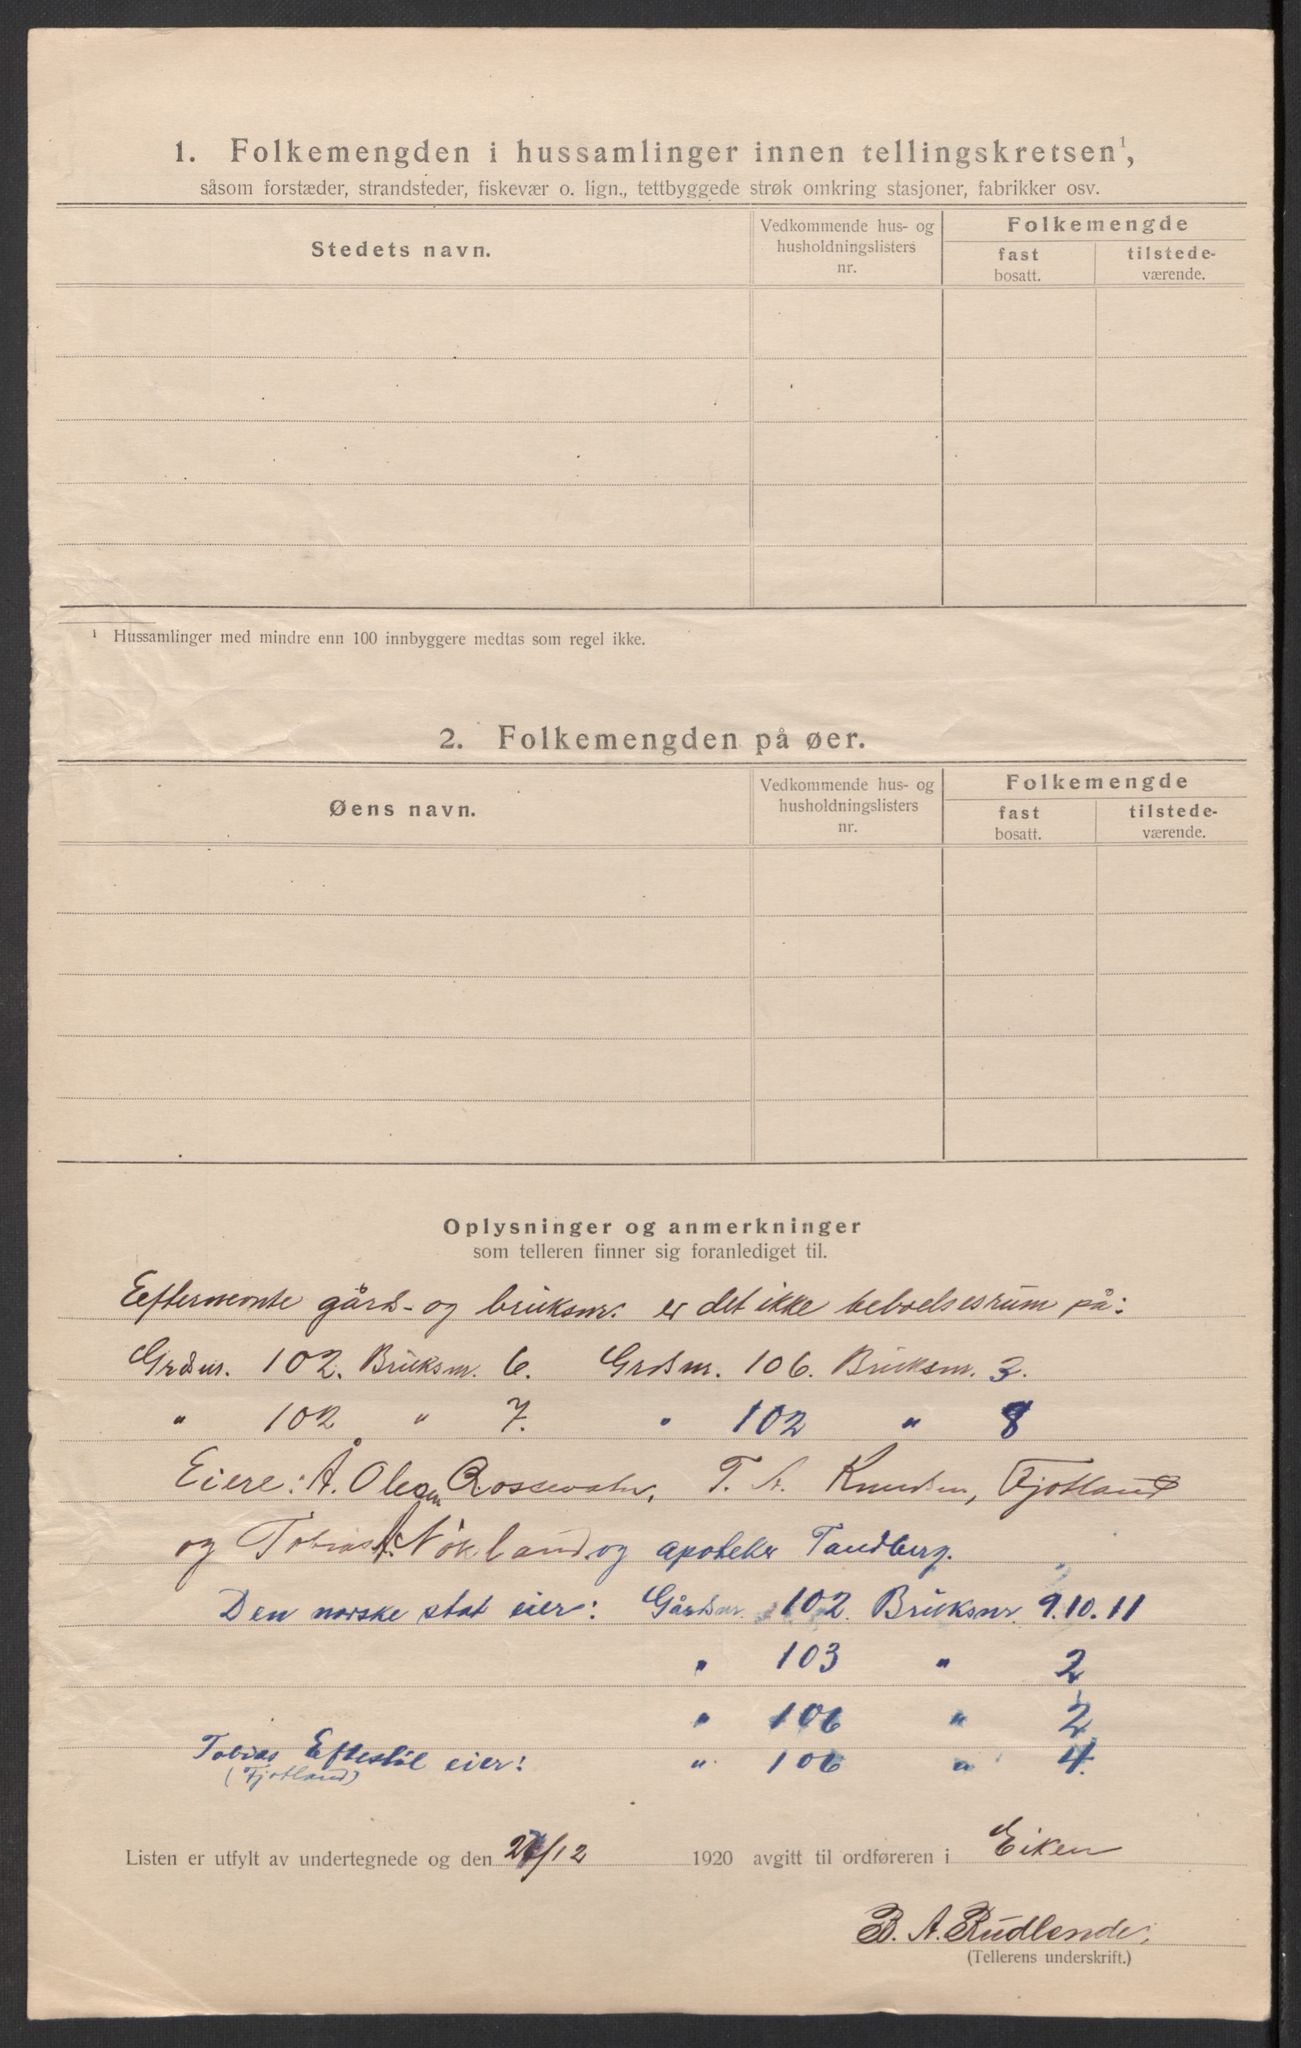 1. Folkemengden i hussamlinger innen tellingskretsen¹,
såsom forstæder, strandsteder, fiskevær o. lign., tettbyggede strøk omkring stasjoner, fabrikker osv.
Stedets navn.
Vedkommende hus- og husholdningslisters nr.
Folkemengde
fast bosatt.
tilstede-værende.
¹ Hussamlinger med mindre enn 100 innbyggere medtas som regel ikke.
2. Folkemengden på øer.
Øens navn.
Vedkommende hus- og husholdningslisters nr.
Folkemengde
fast bosatt.
tilstede-værende.
Oplysninger og anmerkninger
som telleren finner sig foranlediget til.
Eefternevnte gårds- og bruksnr. er det ikke beboelsesrum på:
Grdsnr. 102. Bruksnr. 6. Grdsnr. 106. Bruksnr. 3.
" 102 " 7. " 102 " 8
Eiere: Å. Olesen Rossevatn, T. A. Knudsen, Fjotland
og Tobias Nökland og apoteker Tandberg.
Den norske stat eier: Gårdsnr. 102. Bruksnr. 9.10.11
" 103 " 2
" 106 " 2
Tobias Eftestöl eier: " 106 " 4.
(Fjotland)
Listen er utfylt av undertegnede og den /12 1920 avgitt til ordføreren i Eiken
B. A. Rudlende.
(Tellerens underskrift.)